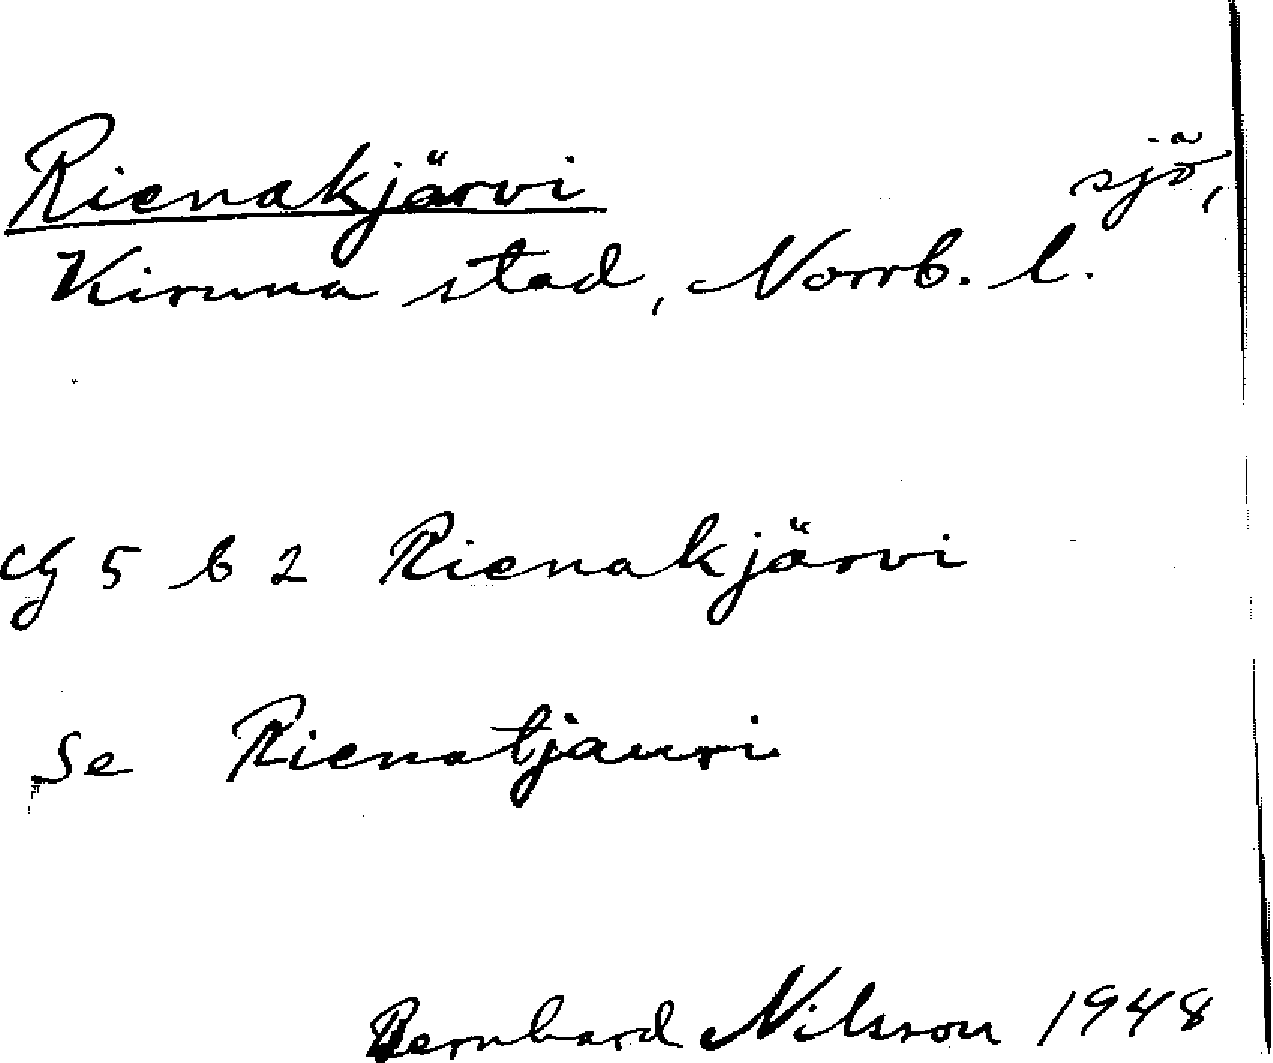 Rienakjärvi sjö,
Kiruna stad, Norrb. l.
5 b 2 Rienakjärvi
Se Rienatjauri
Bernhard Nilsson 1948